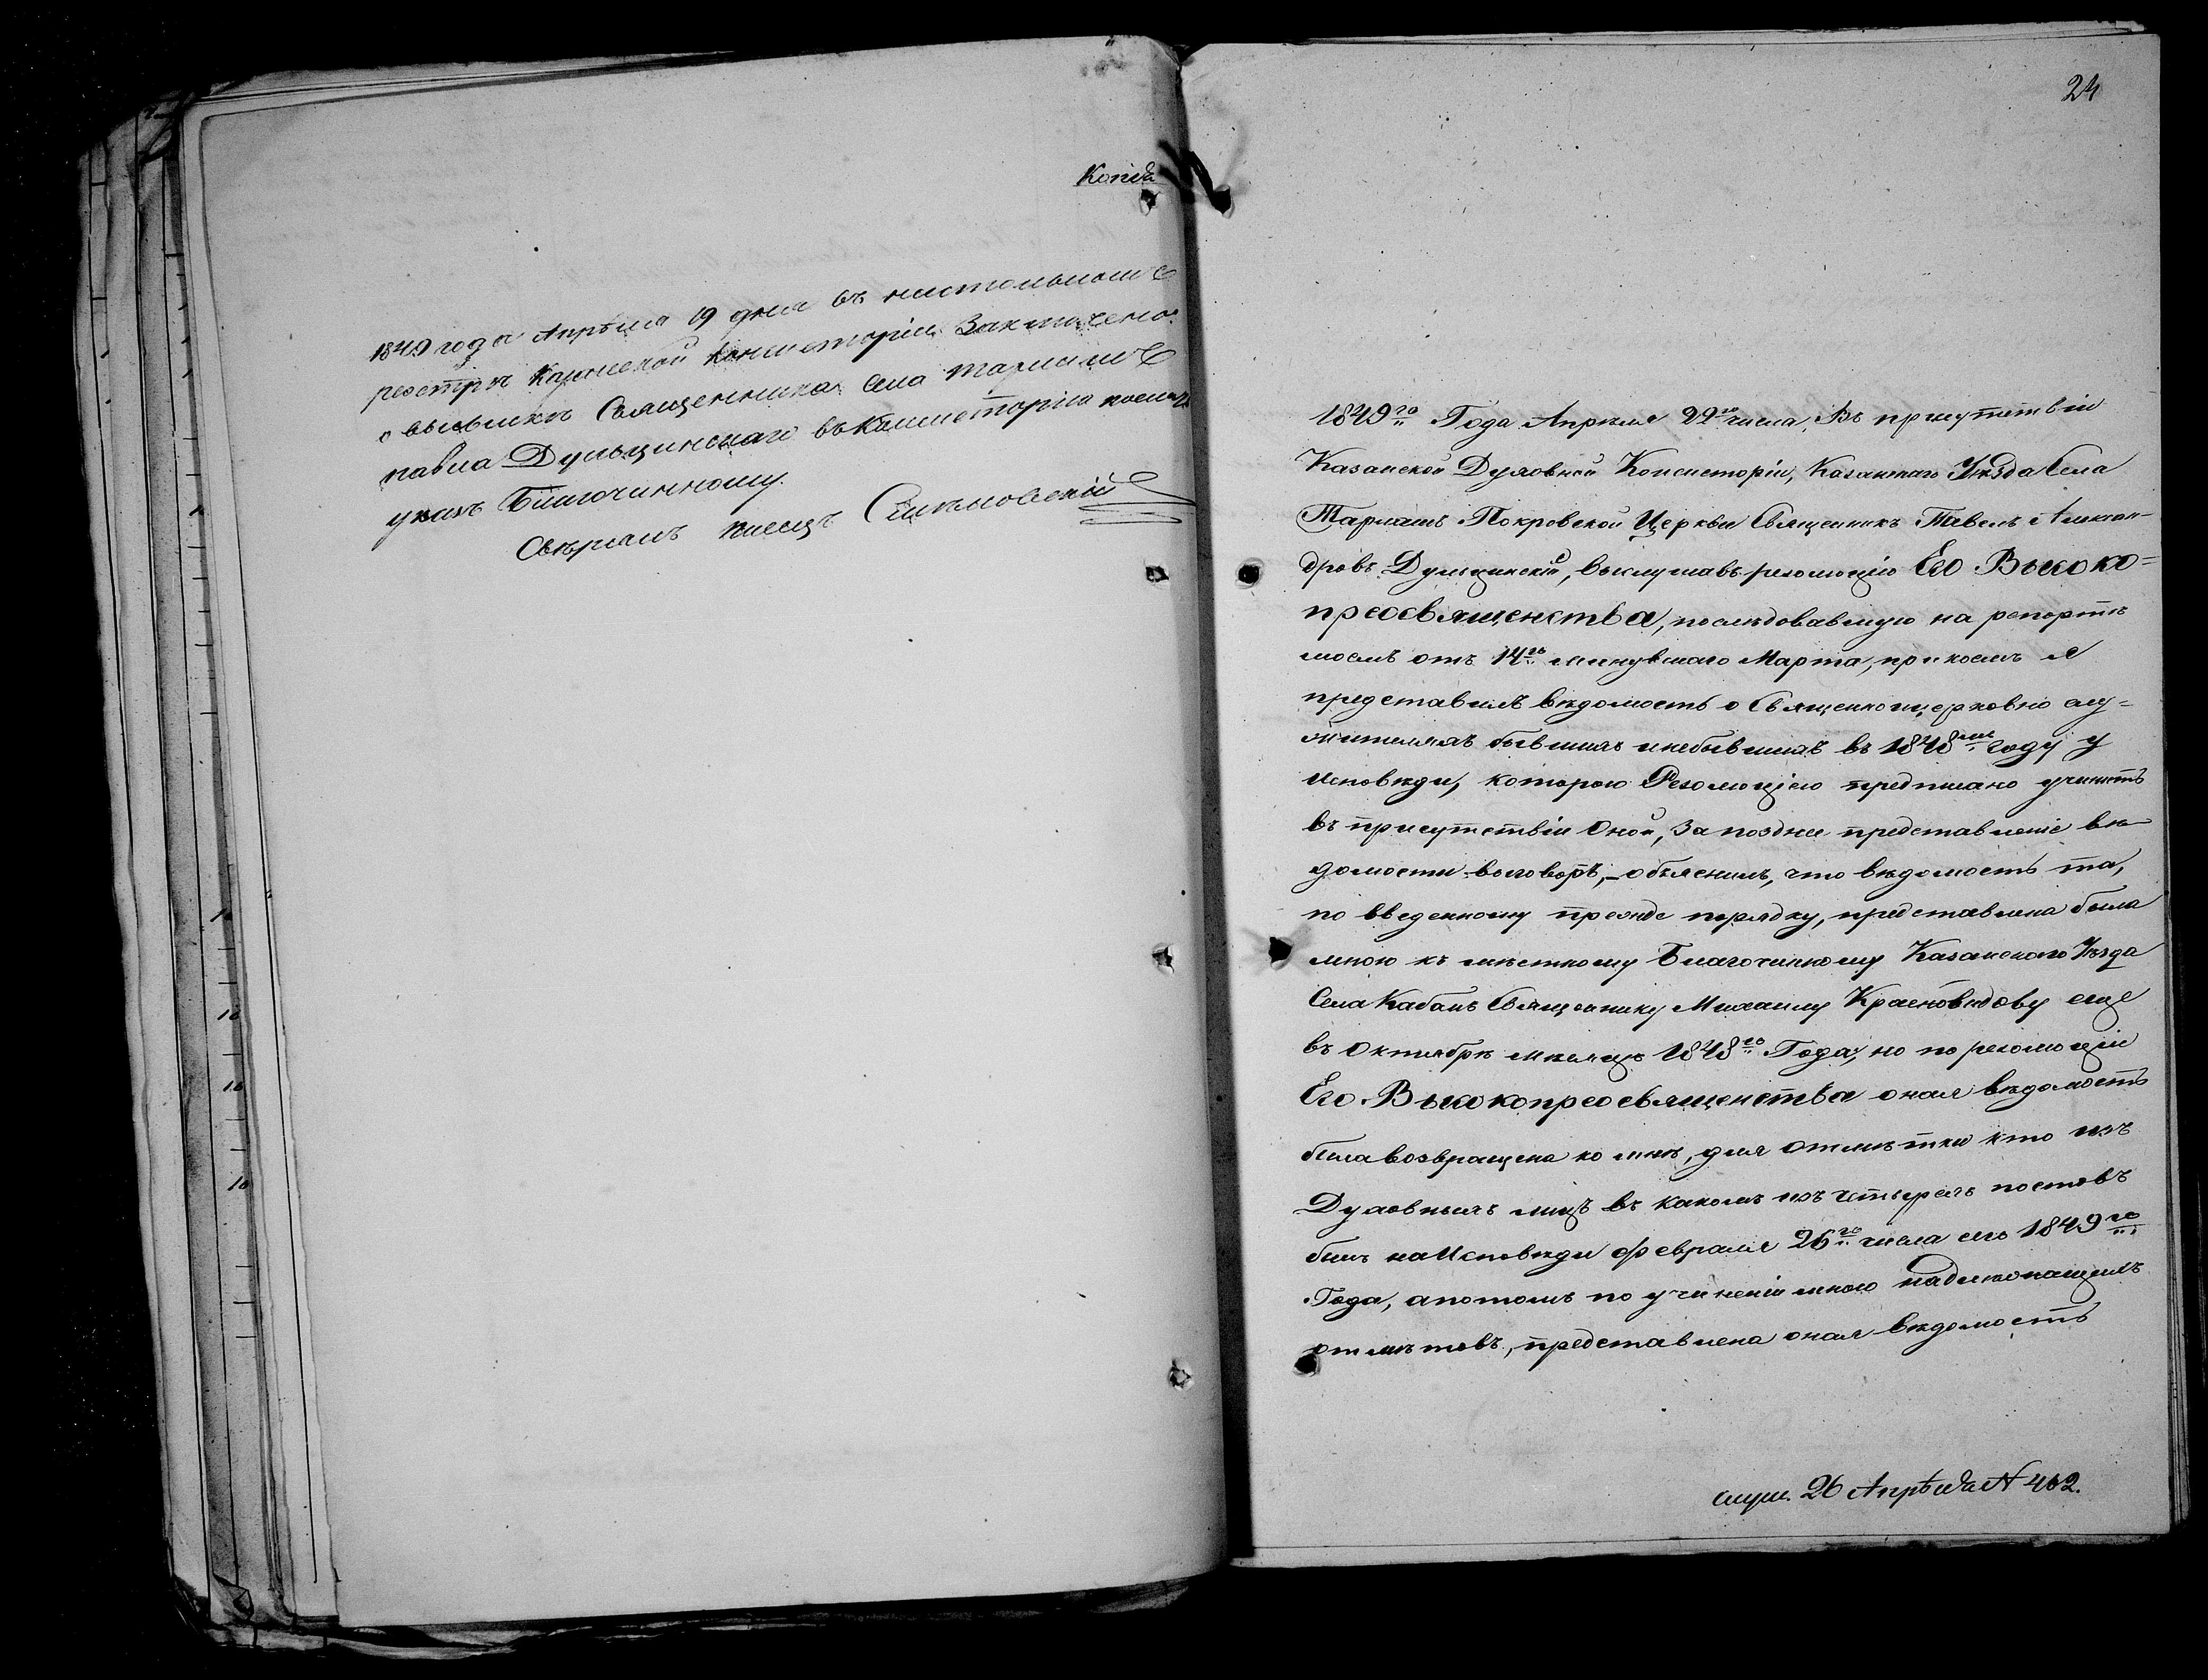 Копія
1849 года Апрѣля 19 дня въ настольномъ
реэстрѣ Казанской Консисторіи Заключено:
о высылкѣ Священника села Тарлашъ
Павла Дульцинскаго въ Консисторію послать
указъ Благочинному.
Свѣрялъ писецъ
24
1849го Года Апрѣля 22го числа, Въ присутствіи
Казанской Духовной Консисторіи, Казанскаго Уѣзда Села
Тарлашъ Покровской Церкви Священникъ Павелъ Алексан-
дровъ Дульцинскій, выслушавъ резолюцію Его Высоко=
преосвященства, послѣдовавшую на репортѣ
моемъ отъ 14го минувшаго Марта, при коемъ я
представилъ вѣдомость о Священноцерковно слу=
жителяхъ бывшихъ и небывшихъ въ 1848мъ году у
Исповѣди, которою Резолюціею предписано учинить
въ присутствіи Оной, За позднее представленіе вѣ-
домости выговоръ, - объяснилъ, что вѣдомость та,
по введенному прежде порядку, представлена была
мною къ мѣстному Благочинному Казанскаго Уѣзда
Села Кабанъ Священнику Михаилу Красновидову еще
въ Октябрѣ мѣсяцѣ 1848го Года, но по резолюціи
Его Высокопреосвященства оная вѣдомость
была возвращена ко мнѣ, для отмѣтки кто изъ
Духовныхъ лицъ въ какомъ изъ четырехъ постовъ
былъ на Исповѣди Февраля 26го числа сего 1849го
Года, а потомъ по учиненіи мною надлежащихъ
отмѣтокъ, представлена оная вѣдомость
слуш. 26 Апрѣля № 462.